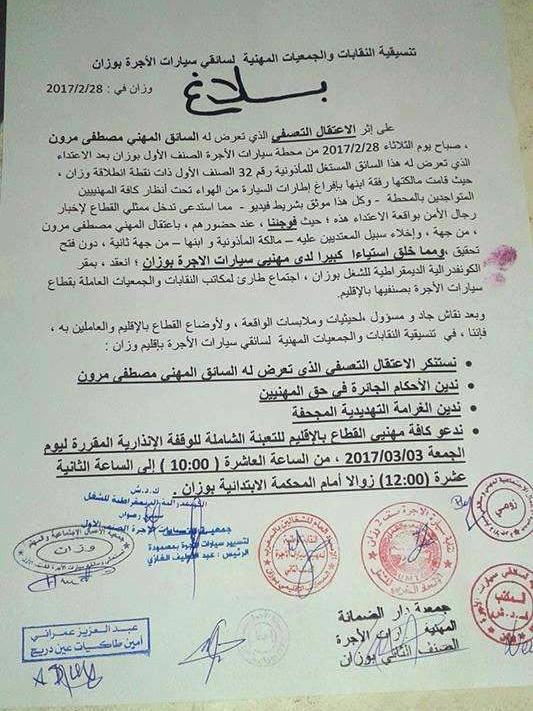 تنسيقية النقابات والجمعيات المهنية لسائقي سيارات الأجرة بوزان
بلاغ
وزان في : 2017/2/28
على إثر الاعتقال التعسفي الذي تعرض له السائق المهني مصطفى مرون
، صباح يوم الثلاثاء 2017/2/28 من محطة سيارات الأجرة الصنف الأول بوزان بعد الاعتداء
الذي تعرض له هذا السائق المستغل للمأذونية رقم 32 الصنف الأول ذات نقطة انطلاقة وزان ،
حيث قامت مالكتها رفقة ابنها بإفراغ إطارات السيارة من الهواء تحت أنظار كافة المهنييين
المتواجدين بالمحطة - وكل هذا موثق بشريط فيديو - مما استدعى تدخل ممثلي القطاع لإخبار
رجال الأمن بواقعة الاعتداء هذه ؛ حيث فوجئنا ، عند حضورهم ، باعتقال المهني مصطفى مرون
، من جهة ، وإخلاء سبيل المعتديين عليه – مالكة المأذونية و ابنها – من جهة ثانية ، دون فتح
تحقيق ,ومما خلق استياءا كبيرا لدى مهنيي سيارات الاجرة بوزان ؛ انعقد ، بمقر
الكونفدرالية الديمقراطية للشغل بوزان ، اجتماع طارئ لمكاتب النقابات والجمعيات العاملة بقطاع
سيارات الأجرة بصنفيها بالإقليم.
وبعد نقاش جاد و مسؤول ،لحيثيات وملابسات الواقعة ، ولأوضاع القطاع بالإقليم والعاملين به ،
فإننا ، في تنسيقية النقابات والجمعيات المهنية لسائقي سيارات الأجرة بإقليم وزان :
• نستنكر الاعتقال التعسفي الذي تعرض له السائق المهني مصطفى مرون
• ندين الأحكام الجائرة في حق المهنيين
• ندين الغرامة التهديدية المجحفة
• ندعو كافة مهنيي القطاع بالإقليم للتعبئة الشاملة للوقفة الإنذارية المقررة ليوم
الجمعة 2017/03/03 ، من الساعة العاشرة ( 10:00 ) إلى الساعة الثانية
عشرة (12:00) زوالا أمام المحكمة الابتدائية بوزان .
ك.د.ش
الكونفدرالية الديمقراطية للشغل
لتسيير سيارات الأجرة بمصمودة
الرئيس : عبد اللطيف الغازي
وزان
جمعية دار الضمانة
المهنية
الأجرة
الصنف الثاني بوزان
عبد العزيز عمراني
أمين طاكسيات عين دريج